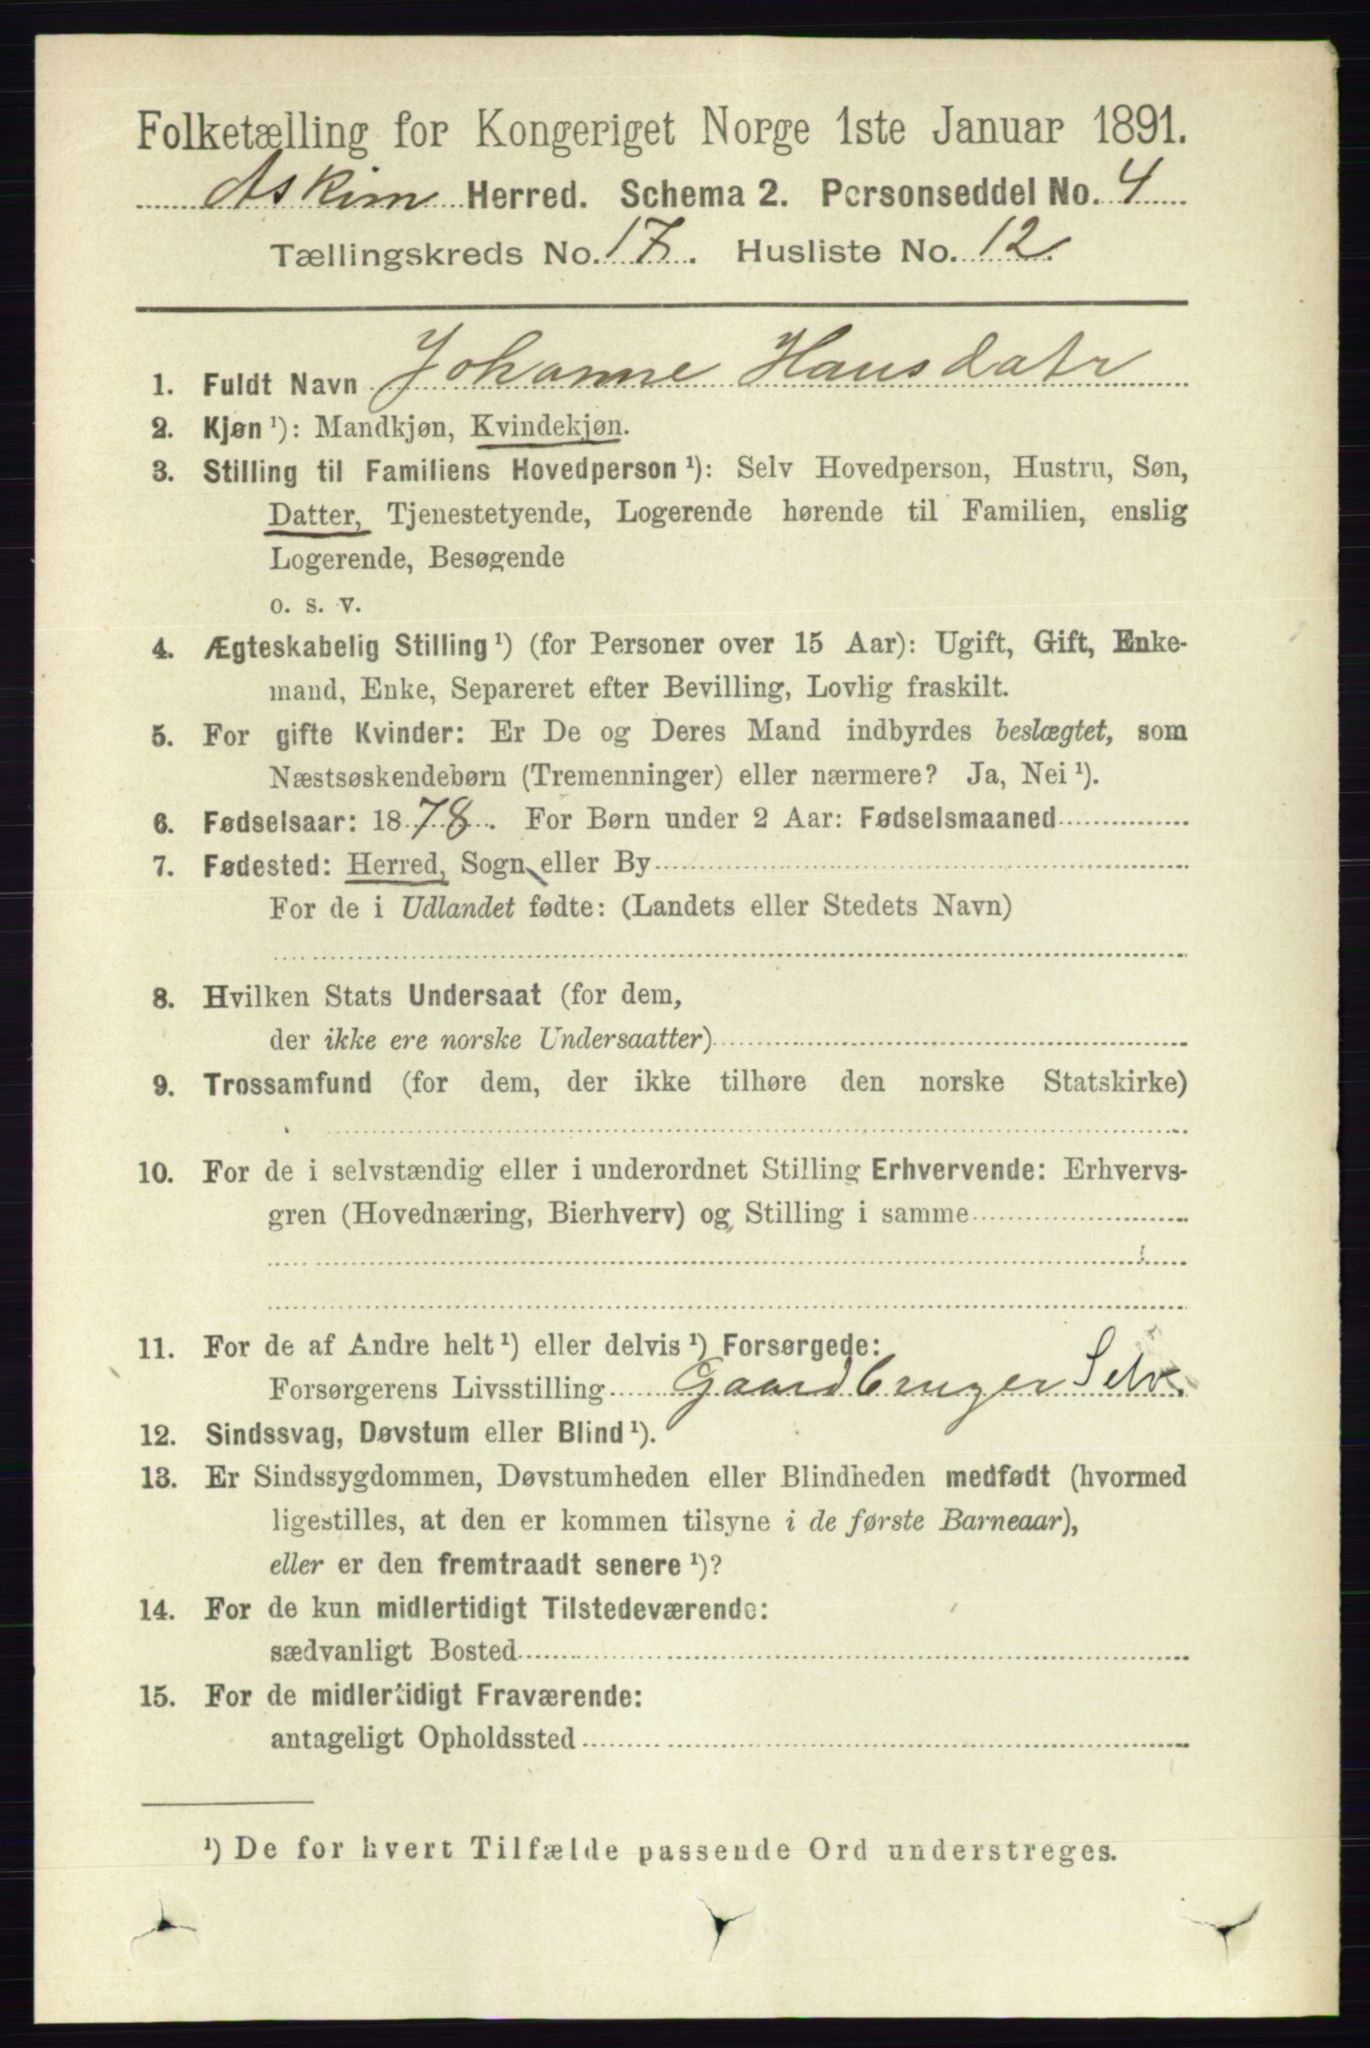 Folketælling for Kongeriget Norge 1ste Januar 1891.
Askim Herred. Schema 2. Personseddel No. 4
Tællingskreds No. 17. Husliste No. 12.
1. Fuldt Navn Johanne Hansdatr
2. Kjøn ¹): Mandkjøn, Kvindekjøn.
3. Stilling til Familiens Hovedperson ¹): Selv Hovedperson, Hustru, Søn,
Datter, Tjenestetyende, Logerende hørende til Familien, enslig
Logerende, Besøgende
o. s. v.
4. Ægteskabelig Stilling ¹) (for Personer over 15 Aar): Ugift, Gift, Enke-
mand, Enke, Separeret efter Bevilling, Lovlig fraskilt.
5. For gifte Kvinder: Er De og Deres Mand indbyrdes beslægtet, som
Næstsøskendebørn (Tremenninger) eller nærmere? Ja, Nei ¹).
6. Fødselsaar: 1878. For Børn under 2 Aar: Fødselsmaaned
7. Fødested: Herred, Sogn, eller By
For de i Udlandet fødte: (Landets eller Stedets Navn)
8. Hvilken Stats Undersaat (for dem,
der ikke ere norske Undersaatter)
9. Trossamfund (for dem, der ikke tilhøre den norske Statskirke)
10. For de i selvstændig eller i underordnet Stilling Erhvervende: Erhvervs-
gren (Hovednæring, Bierhverv) og Stilling i samme
11. For de af Andre helt ¹) eller delvis ¹) Forsørgede:
Forsørgerens Livsstilling Gaardbruger Selv.
12. Sindssvag, Døvstum eller Blind ¹).
13. Er Sindssygdommen, Døvstumheden eller Blindheden medfødt (hvormed
ligestilles, at den er kommen tilsyne i de første Barneaar),
eller er den fremtraadt senere ¹)?
14. For de kun midlertidigt Tilstedeværende:
sædvanligt Bosted
15. For de midlertidigt Fraværende:
antageligt Opholdssted
¹) De for hvert Tilfælde passende Ord understreges.